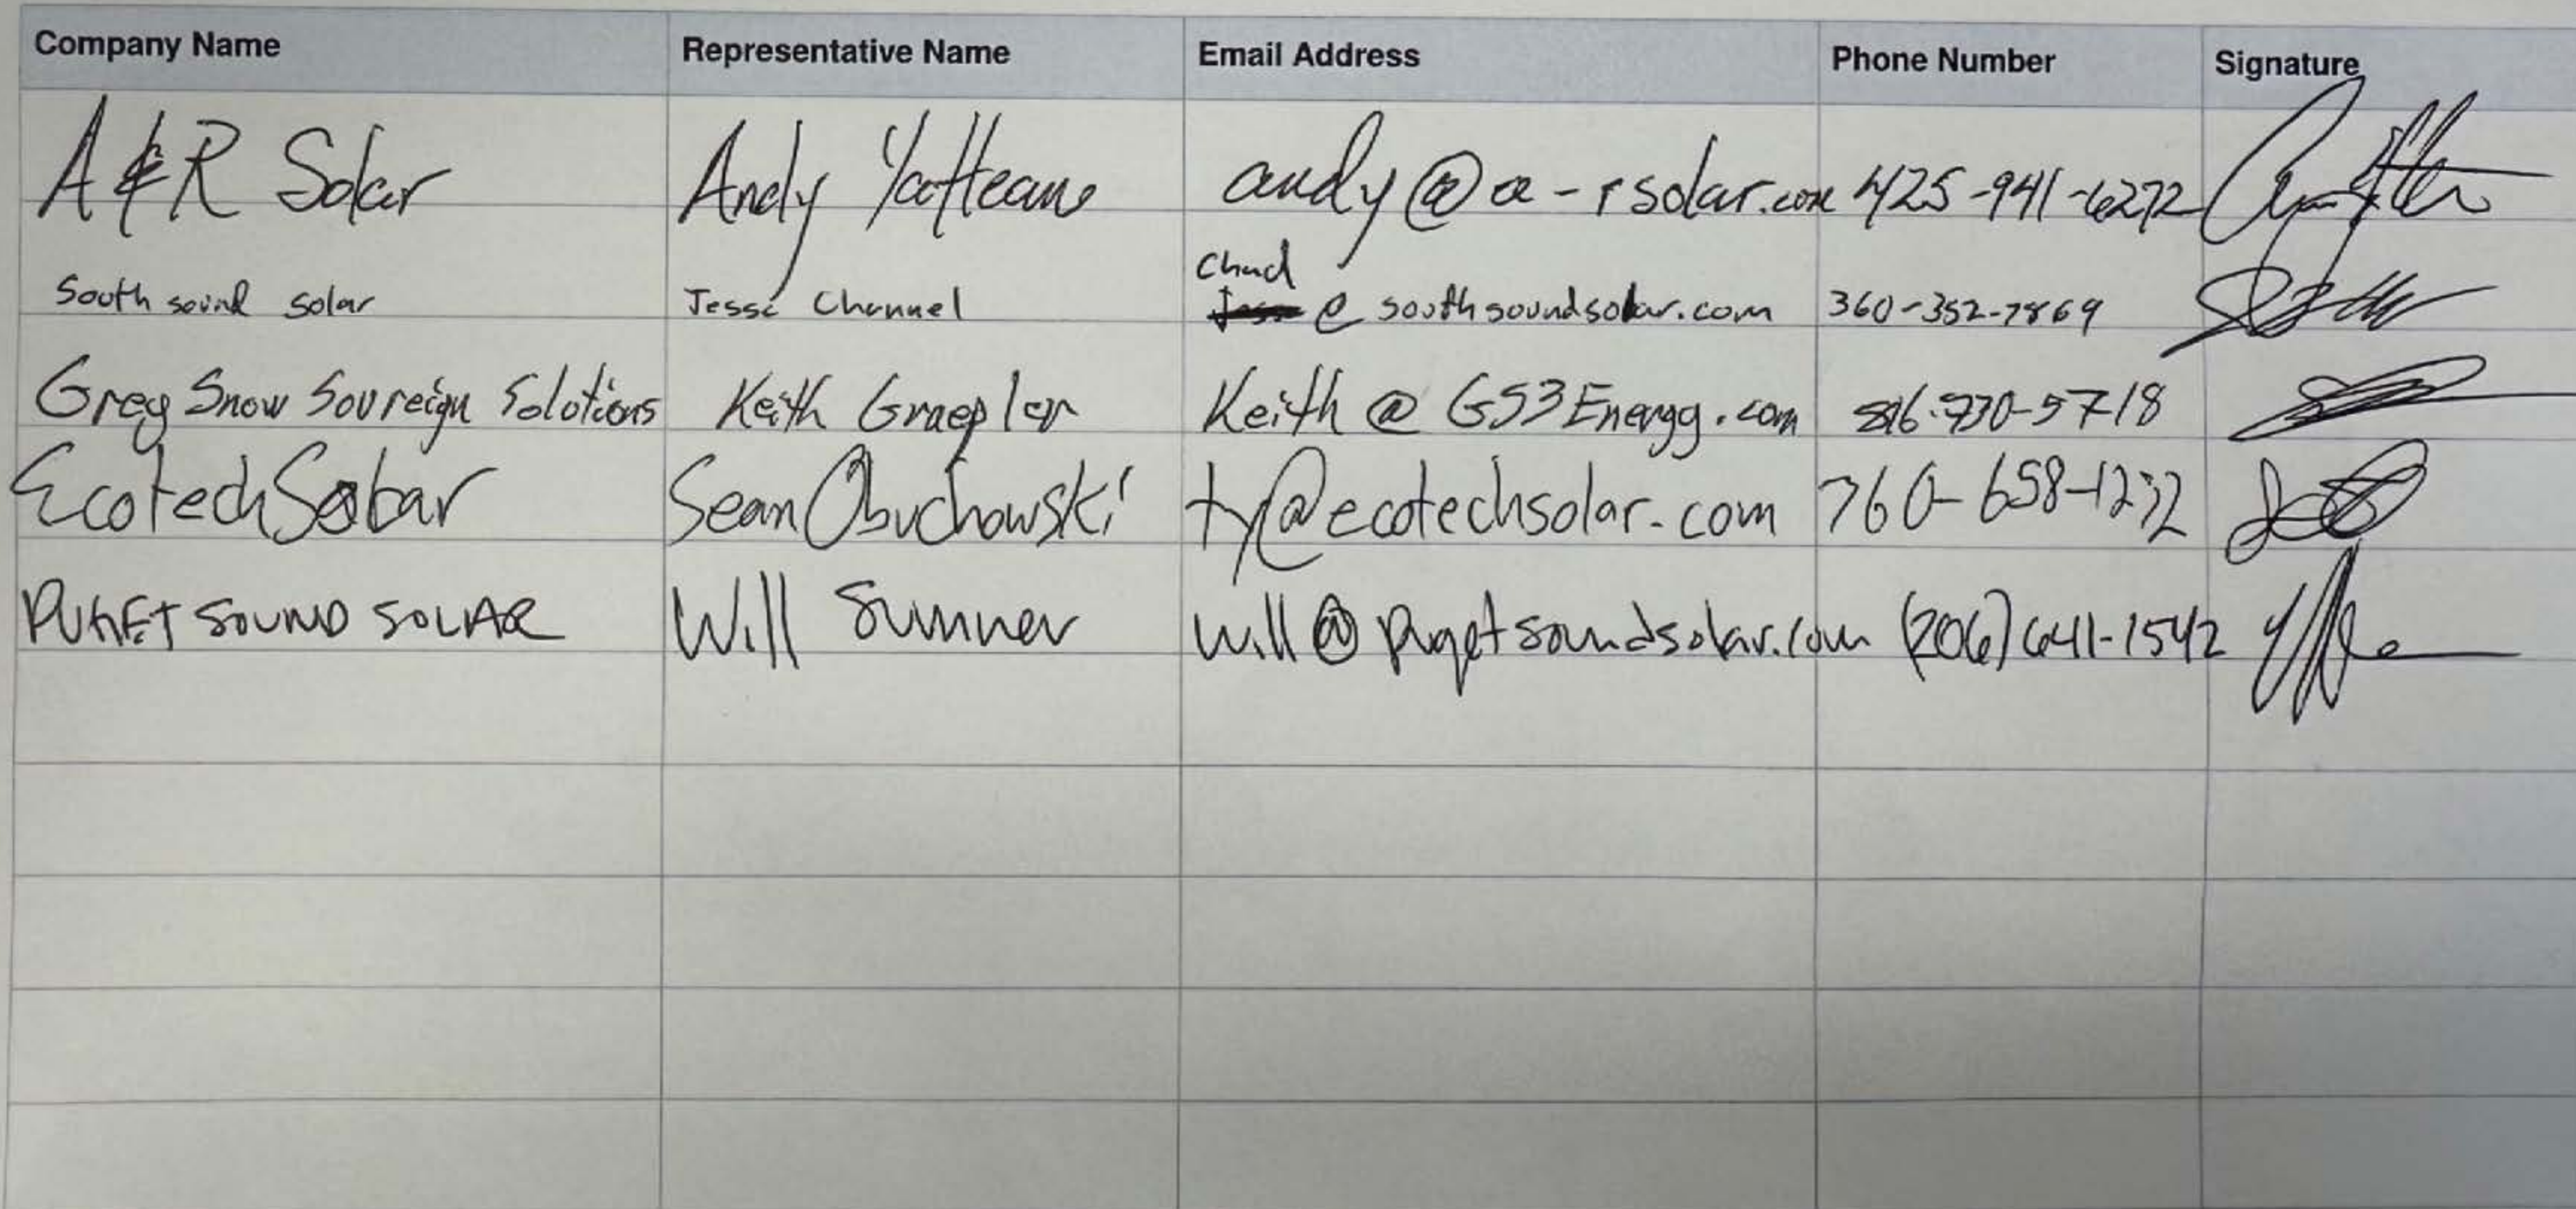 Company Name Representative Name Email Address Phone Number Signature
A & R Solar Andy Yatteau andy@a-rsolar.com 425-941-6272
Chad
South sound solar Jesse Channel @ southsoundsolar.com 360-352-7869
Grey Snow Sovreign Solutions Keith Graepler Keith @ GS3Energy.com 816-730-5718
Ecotech Solar Sean Obuchowski ty@ecotechsolar.com 760-658-1232
PUGET SOUND SOLAR Will Sumner will@pugetsoundsolar.com (206) 641-1542